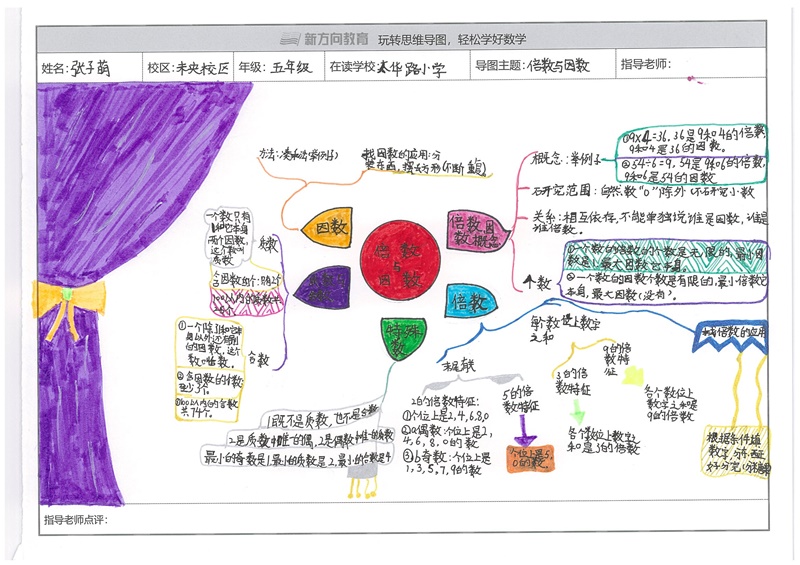 新方向教育 玩转思维导图，轻松学好数学
姓名：张子萌 校区：未央校区 年级：五年级 在读学校 太华路小学 导图主题：倍数与因数 指导老师：
倍数
与
因数
因数
找因数的应用：分
倍数因
数概念
概念：举例子
①9×4=36，36是9和4的倍数，
9和4是36的因数。
②54÷6=9，54是9和6的倍数，
9和6是54的因数
研究范围：自然数"0"除外（不研究小数
关系：相互依存，不能单独说谁是因数，谁是
谁倍数。
个数
①一个数的倍数的个数是无限的，最小因
②一个数的因数个数是有限的，最小倍数它
本身，最大因数（没有）。
倍数
找倍数的应用
根据条件填
每个数位上数字
之和
9的倍数特
征
各个数位上
数字之和是
9的倍数
3的倍数
数特征
各个数位上数字
和是3的倍数
5的倍
数特征
个位上是5，
0的数。
2的倍数特征：
①个位上是2,4,6,8,0
②a偶数：个位上是2,
4,6,8,0的数
③b奇数：个位上是
1,3,5,7,9的数
特殊
数
1既不是质数，也不是合数
2是质数中唯一的偶，2是偶数中唯一的质数
最小的奇数是1，最小的质数是2，最小的合数是4
质数
一个数只有
1和它本身
两个因数，
这个数叫
质数
合数
①一个除1和它本
身以外还有别
的因数，这个
数叫合数。
②合因数的个数
至少3个。
③100以内的合数
共74个。
指导老师点评：